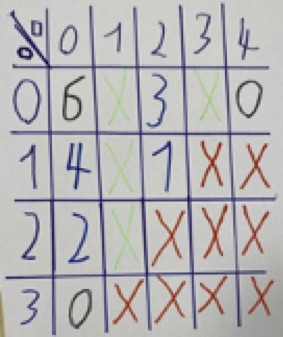 0 1 2 3 4
0 6 X 3 X 0
1 4 X 1 X X
2 2 X X X X
3 0 X X X X